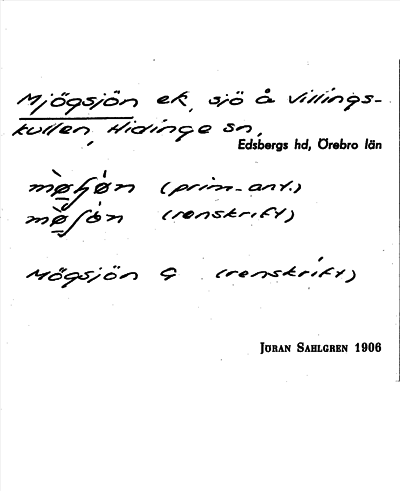 Mjögsjön ek, sjö å Villings-
kullen, Hidinge sn,
Edsbergs hd, Örebro län
(prim-ant.)
(renskrift)
Mögsjön G (renskrift)
JÖRAN SAHLGREN 1906